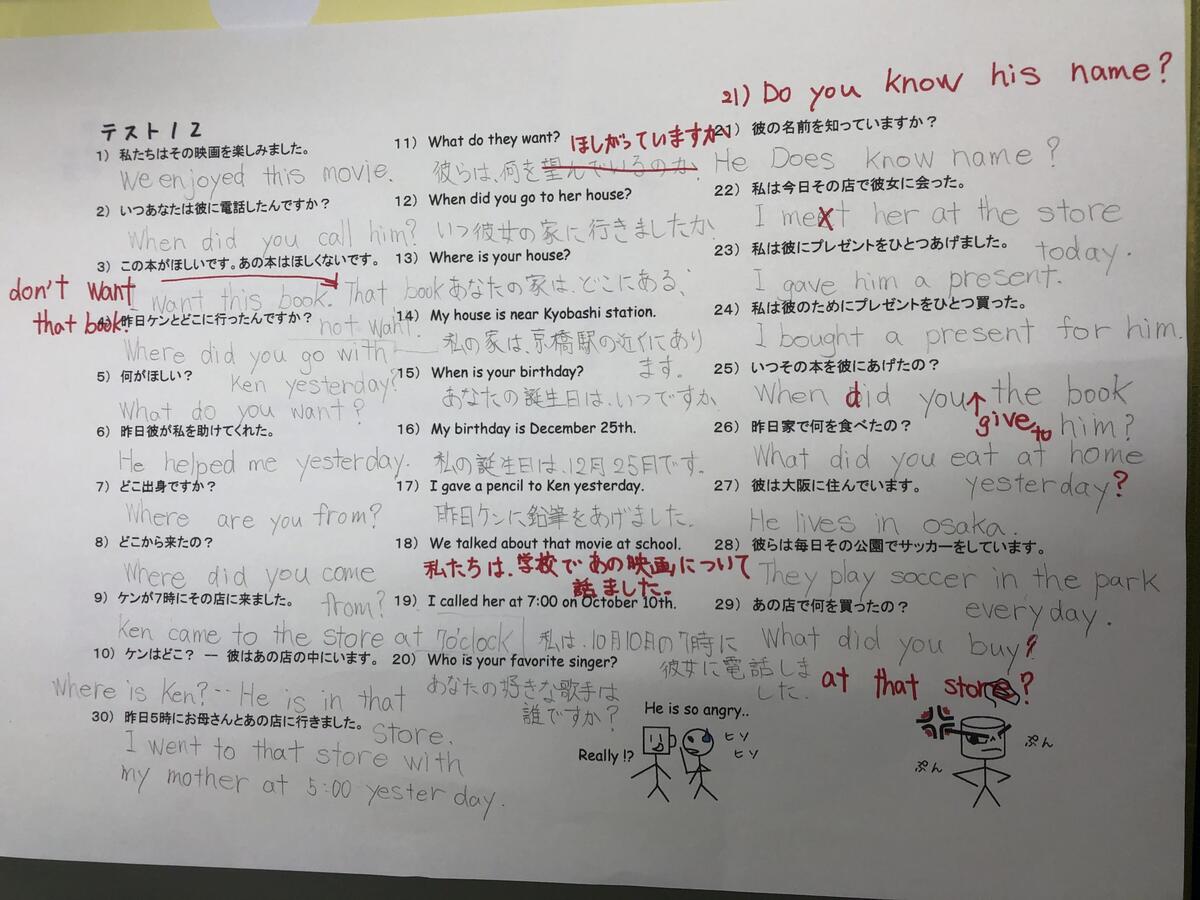 21) Do you know his name?
テスト12
1) 私たちはその映画を楽しみました。
We enjoyed this movie.
2) いつあなたは彼に電話したんですか？
When did you call him?
3) この本がほしいです。あの本はほしくないです。
I want this book. That book
not want.
don't want
that book.
4) 昨日ケンとどこに行ったんですか？
Where did you go with
Ken yesterday?
5) 何がほしい？
What do you want?
6) 昨日彼が私を助けてくれた。
He helped me yesterday.
7) どこ出身ですか？
Where are you from?
8) どこから来たの？
Where did you come
from?
9) ケンが7時にその店に来ました。
Ken came to the store at 7o'clock
10) ケンはどこ？ ー 彼はあの店の中にいます。
Where is Ken? -- He is in that
store.
30) 昨日5時にお母さんとあの店に行きました。
I went to that store with
my mother at 5:00 yesterday.
11) What do they want?
ほしがっていますか
彼らは、何を望んでいるのか.
12) When did you go to her house?
いつ彼女の家に行きましたか.
13) Where is your house?
あなたの家は、どこにある、
14) My house is near Kyobashi station.
私の家は、京橋駅の近くにあり
ます。
15) When is your birthday?
あなたの誕生日は、いつですか
16) My birthday is December 25th.
私の誕生日は、12月25日です。
17) I gave a pencil to Ken yesterday.
昨日ケンに鉛筆をあげました.
18) We talked about that movie at school.
私たちは、学校であの映画について
話ました。
19) I called her at 7:00 on October 10th.
私は、10月10日の7時に
彼女に電話しま
した.
20) Who is your favorite singer?
あなたの好きな歌手は
誰ですか？
21) 彼の名前を知っていますか？
He Does know name?
22) 私は今日その店で彼女に会った。
I meet her at the store
today.
23) 私は彼にプレゼントをひとつあげました。
I gave him a present.
24) 私は彼のためにプレゼントをひとつ買った。
I bought a present for him.
25) いつその本を彼にあげたの？
When did you the book
give to him?
26) 昨日家で何を食べたの？
What did you eat at home
yesterday?
27) 彼は大阪に住んでいます。
He lives in osaka.
28) 彼らは毎日その公園でサッカーをしています。
They play soccer in the park
everyday.
29) あの店で何を買ったの？
What did you buy?
at that store?
He is so angry..
Really !?
ヒソ
ヒソ
ぷん
ぷん